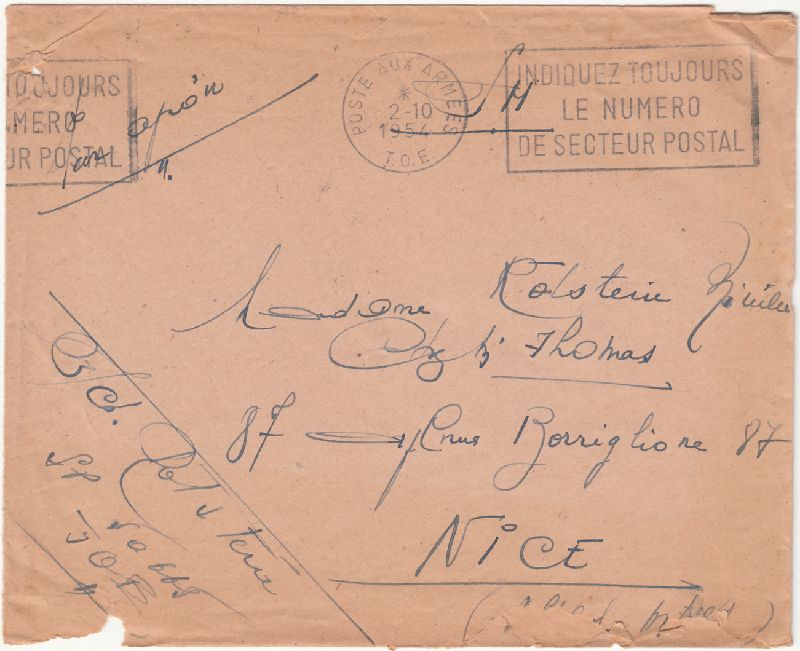 TOUJOURS
MERO
UR POSTAL
par avion
POSTE AUX ARMEES
*
2-10
1954
T.O.E.
INDIQUEZ TOUJOURS
LE NUMERO
DE SECTEUR POSTAL
Madame Rolstein
Chez Mr Thomas
87 Avenue Borriglione 87
NICE
Rolstein
SP
TOE